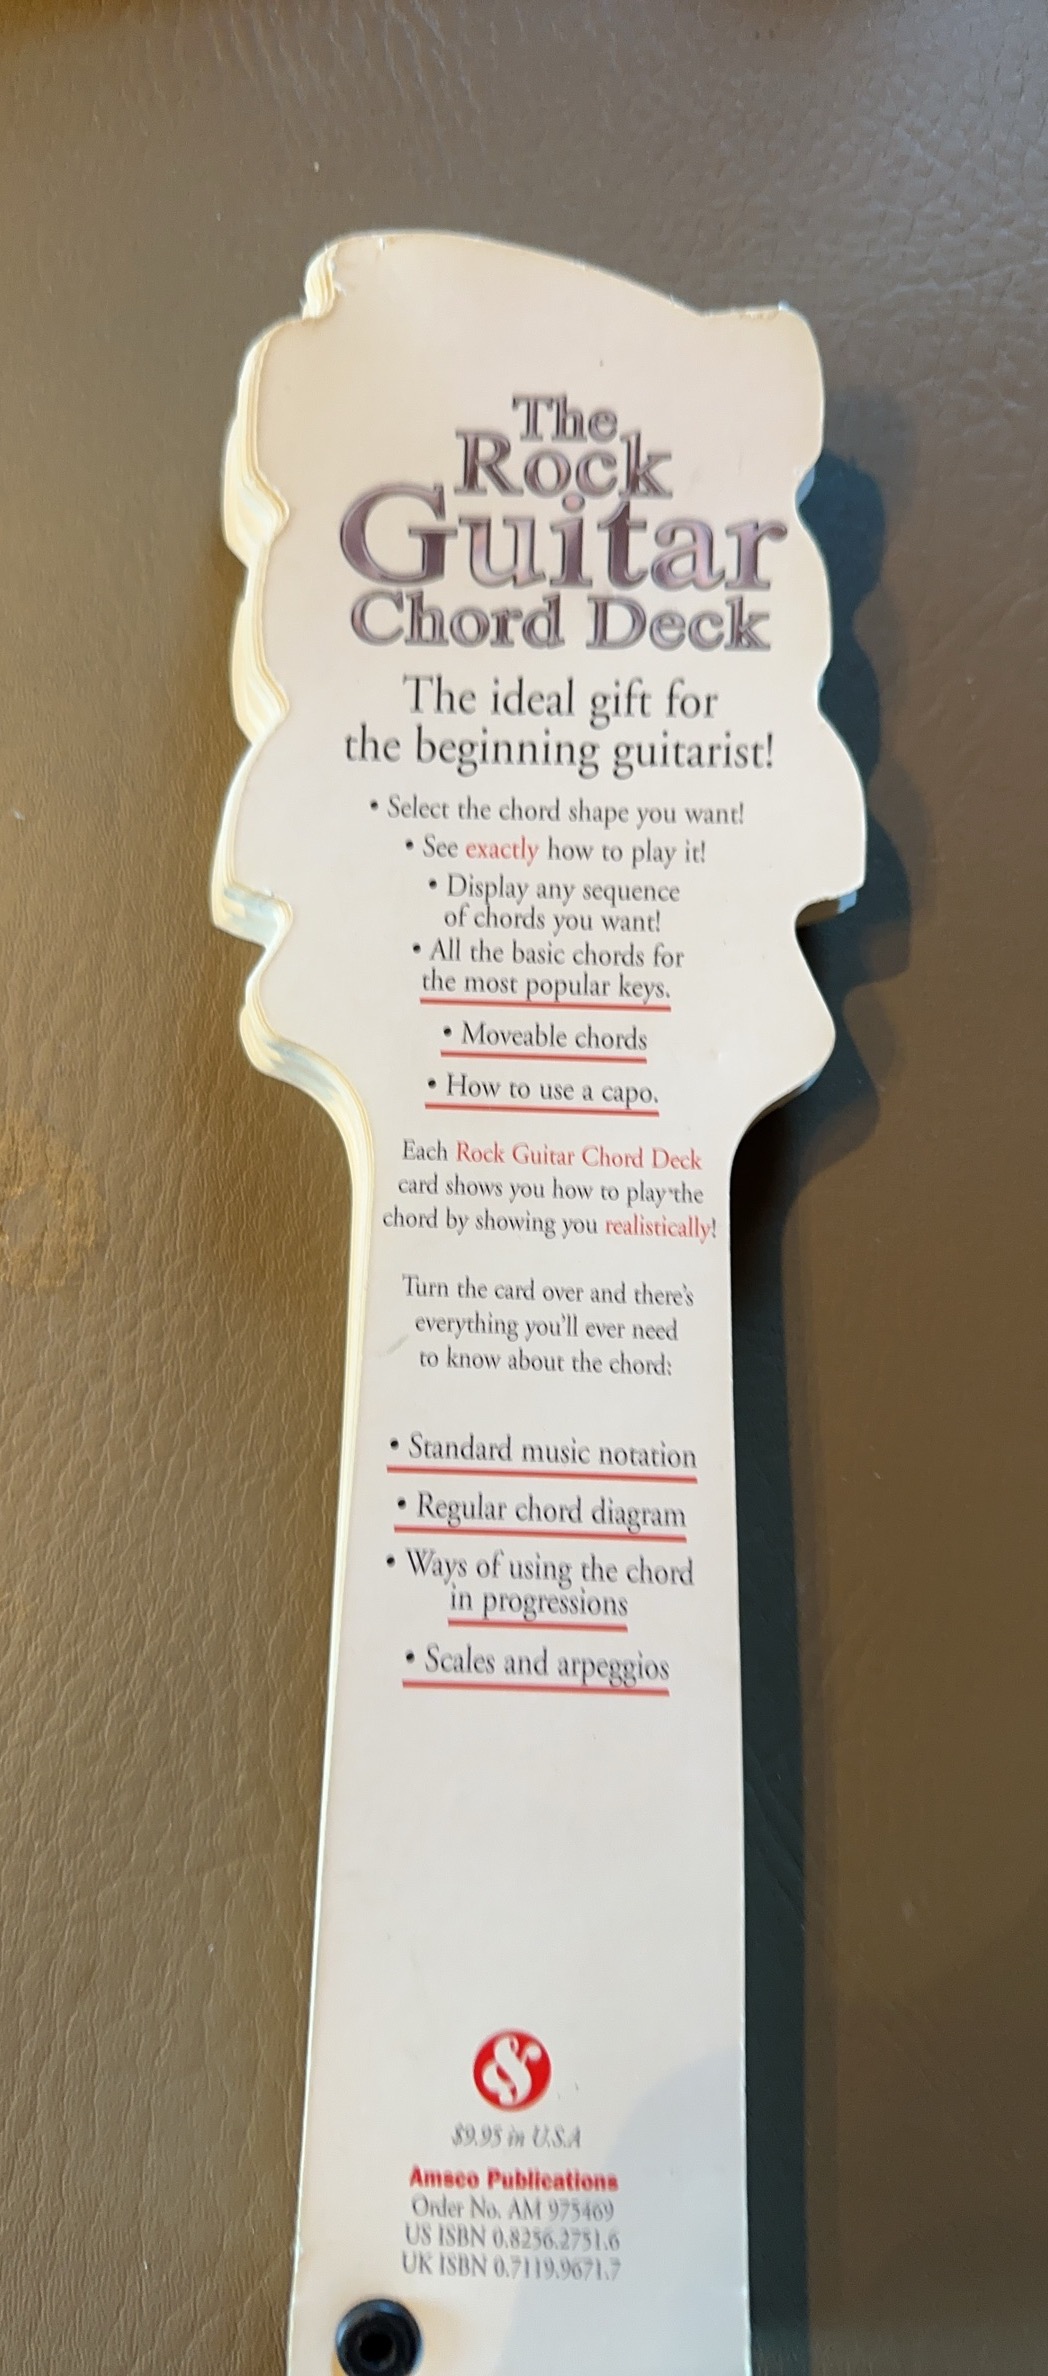 The
Rock
Guitar
Chord Deck
The ideal gift for
the beginning guitarist!
• Select the chord shape you want!
• See exactly how to play it!
• Display any sequence
of chords you want!
• All the basic chords for
the most popular keys.
• Moveable chords
• How to use a capo.
Each Rock Guitar Chord Deck
card shows you how to play the
chord by showing you realistically!
Turn the card over and there's
everything you'll ever need
to know about the chord:
• Standard music notation
• Regular chord diagram
• Ways of using the chord
in progressions
• Scales and arpeggios
$9.95 in U.S.A
Amsco Publications
Order No. AM 975469
US ISBN 0.8256.2751.6
UK ISBN 0.7119.9671.7